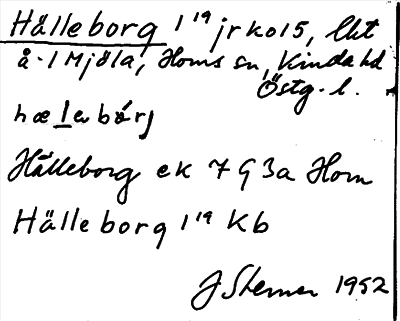 Hälleborg 1¹⁹ jrko15, lht
å. 1 Mjöla, Horns sn, Kinda hd
Östg. l.
hælebórj
Hälleborg ek 7 G 3a Horn
Hälleborg 1¹⁹ Kb
J Sterner 1952